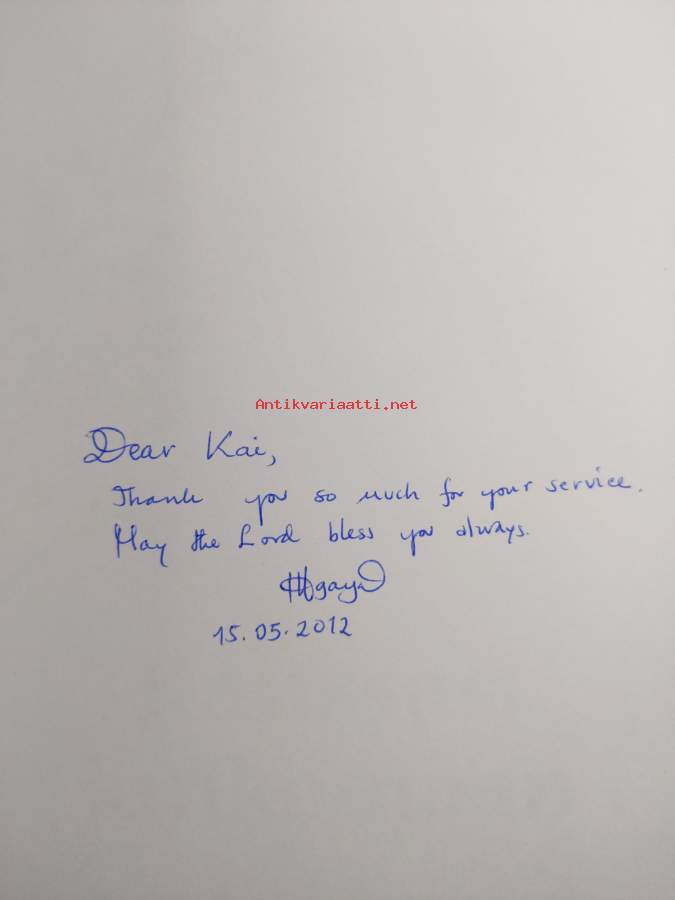 Antikvariaatti.net
Dear Kai,
Thank you so much for your service.
May the Lord bless you always.
15.05.2012